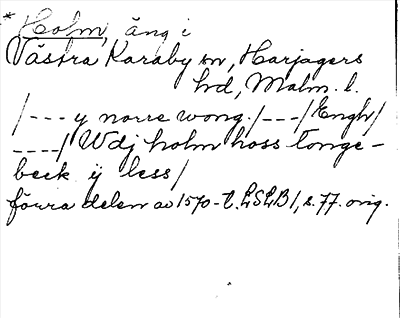 * Holm, äng i
Västra Karaby sn, Harjagers
hd, Malm. l.
/--- y norre wong./---/Engh/
----/ Wdj holm hoss Tonge-
beck ÿ less/
förra delen av 1570-t. LSLB 1, s. 77. orig.